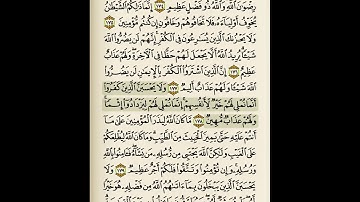 رِضْوَٰنَ ٱللَّهِ وَٱللَّهُ ذُو فَضْلٍ عَظِيمٍ ١٧٤ إِنَّمَا ذَٰلِكُمُ ٱلشَّيْطَٰنُ
يُخَوِّفُ أَوْلِيَآءَهُۥ فَلَا تَخَافُوهُمْ وَخَافُونِ إِن كُنتُم مُّؤْمِنِينَ
١٧٥ وَلَا يَحْزُنكَ ٱلَّذِينَ يُسَٰرِعُونَ فِى ٱلْكُفْرِ إِنَّهُمْ لَن يَضُرُّوا۟ ٱللَّهَ
شَيْـًٔا يُرِيدُ ٱللَّهُ أَلَّا يَجْعَلَ لَهُمْ حَظًّا فِى ٱلْـَٔاخِرَةِ وَلَهُمْ عَذَابٌ
عَظِيمٌ ١٧٦ إِنَّ ٱلَّذِينَ ٱشْتَرَوُا۟ ٱلْكُفْرَ بِٱلْإِيمَٰنِ لَن يَضُرُّوا۟ ٱللَّهَ
شَيْـًٔا وَلَهُمْ عَذَابٌ أَلِيمٌ ١٧٧ وَلَا يَحْسَبَنَّ ٱلَّذِينَ كَفَرُوٓا۟
أَنَّمَا نُمْلِى لَهُمْ خَيْرٌ لِّأَنفُسِهِمْ إِنَّمَا نُمْلِى لَهُمْ لِيَزْدَادُوٓا۟ إِثْمًا
وَلَهُمْ عَذَابٌ مُّهِينٌ ١٧٨ مَّا كَانَ ٱللَّهُ لِيَذَرَ ٱلْمُؤْمِنِينَ عَلَىٰ مَآ
أَنتُمْ عَلَيْهِ حَتَّىٰ يَمِيزَ ٱلْخَبِيثَ مِنَ ٱلطَّيِّبِ وَمَا كَانَ ٱللَّهُ لِيُطْلِعَكُمْ
عَلَى ٱلْغَيْبِ وَلَٰكِنَّ ٱللَّهَ يَجْتَبِى مِن رُّسُلِهِۦ مَن يَشَآءُ فَـَٔامِنُوا۟ بِٱللَّهِ
وَرُسُلِهِۦ وَإِن تُؤْمِنُوا۟ وَتَتَّقُوا۟ فَلَكُمْ أَجْرٌ عَظِيمٌ ١٧٩ وَلَا
يَحْسَبَنَّ ٱلَّذِينَ يَبْخَلُونَ بِمَآ ءَاتَىٰهُمُ ٱللَّهُ مِن فَضْلِهِۦ هُوَ خَيْرًا